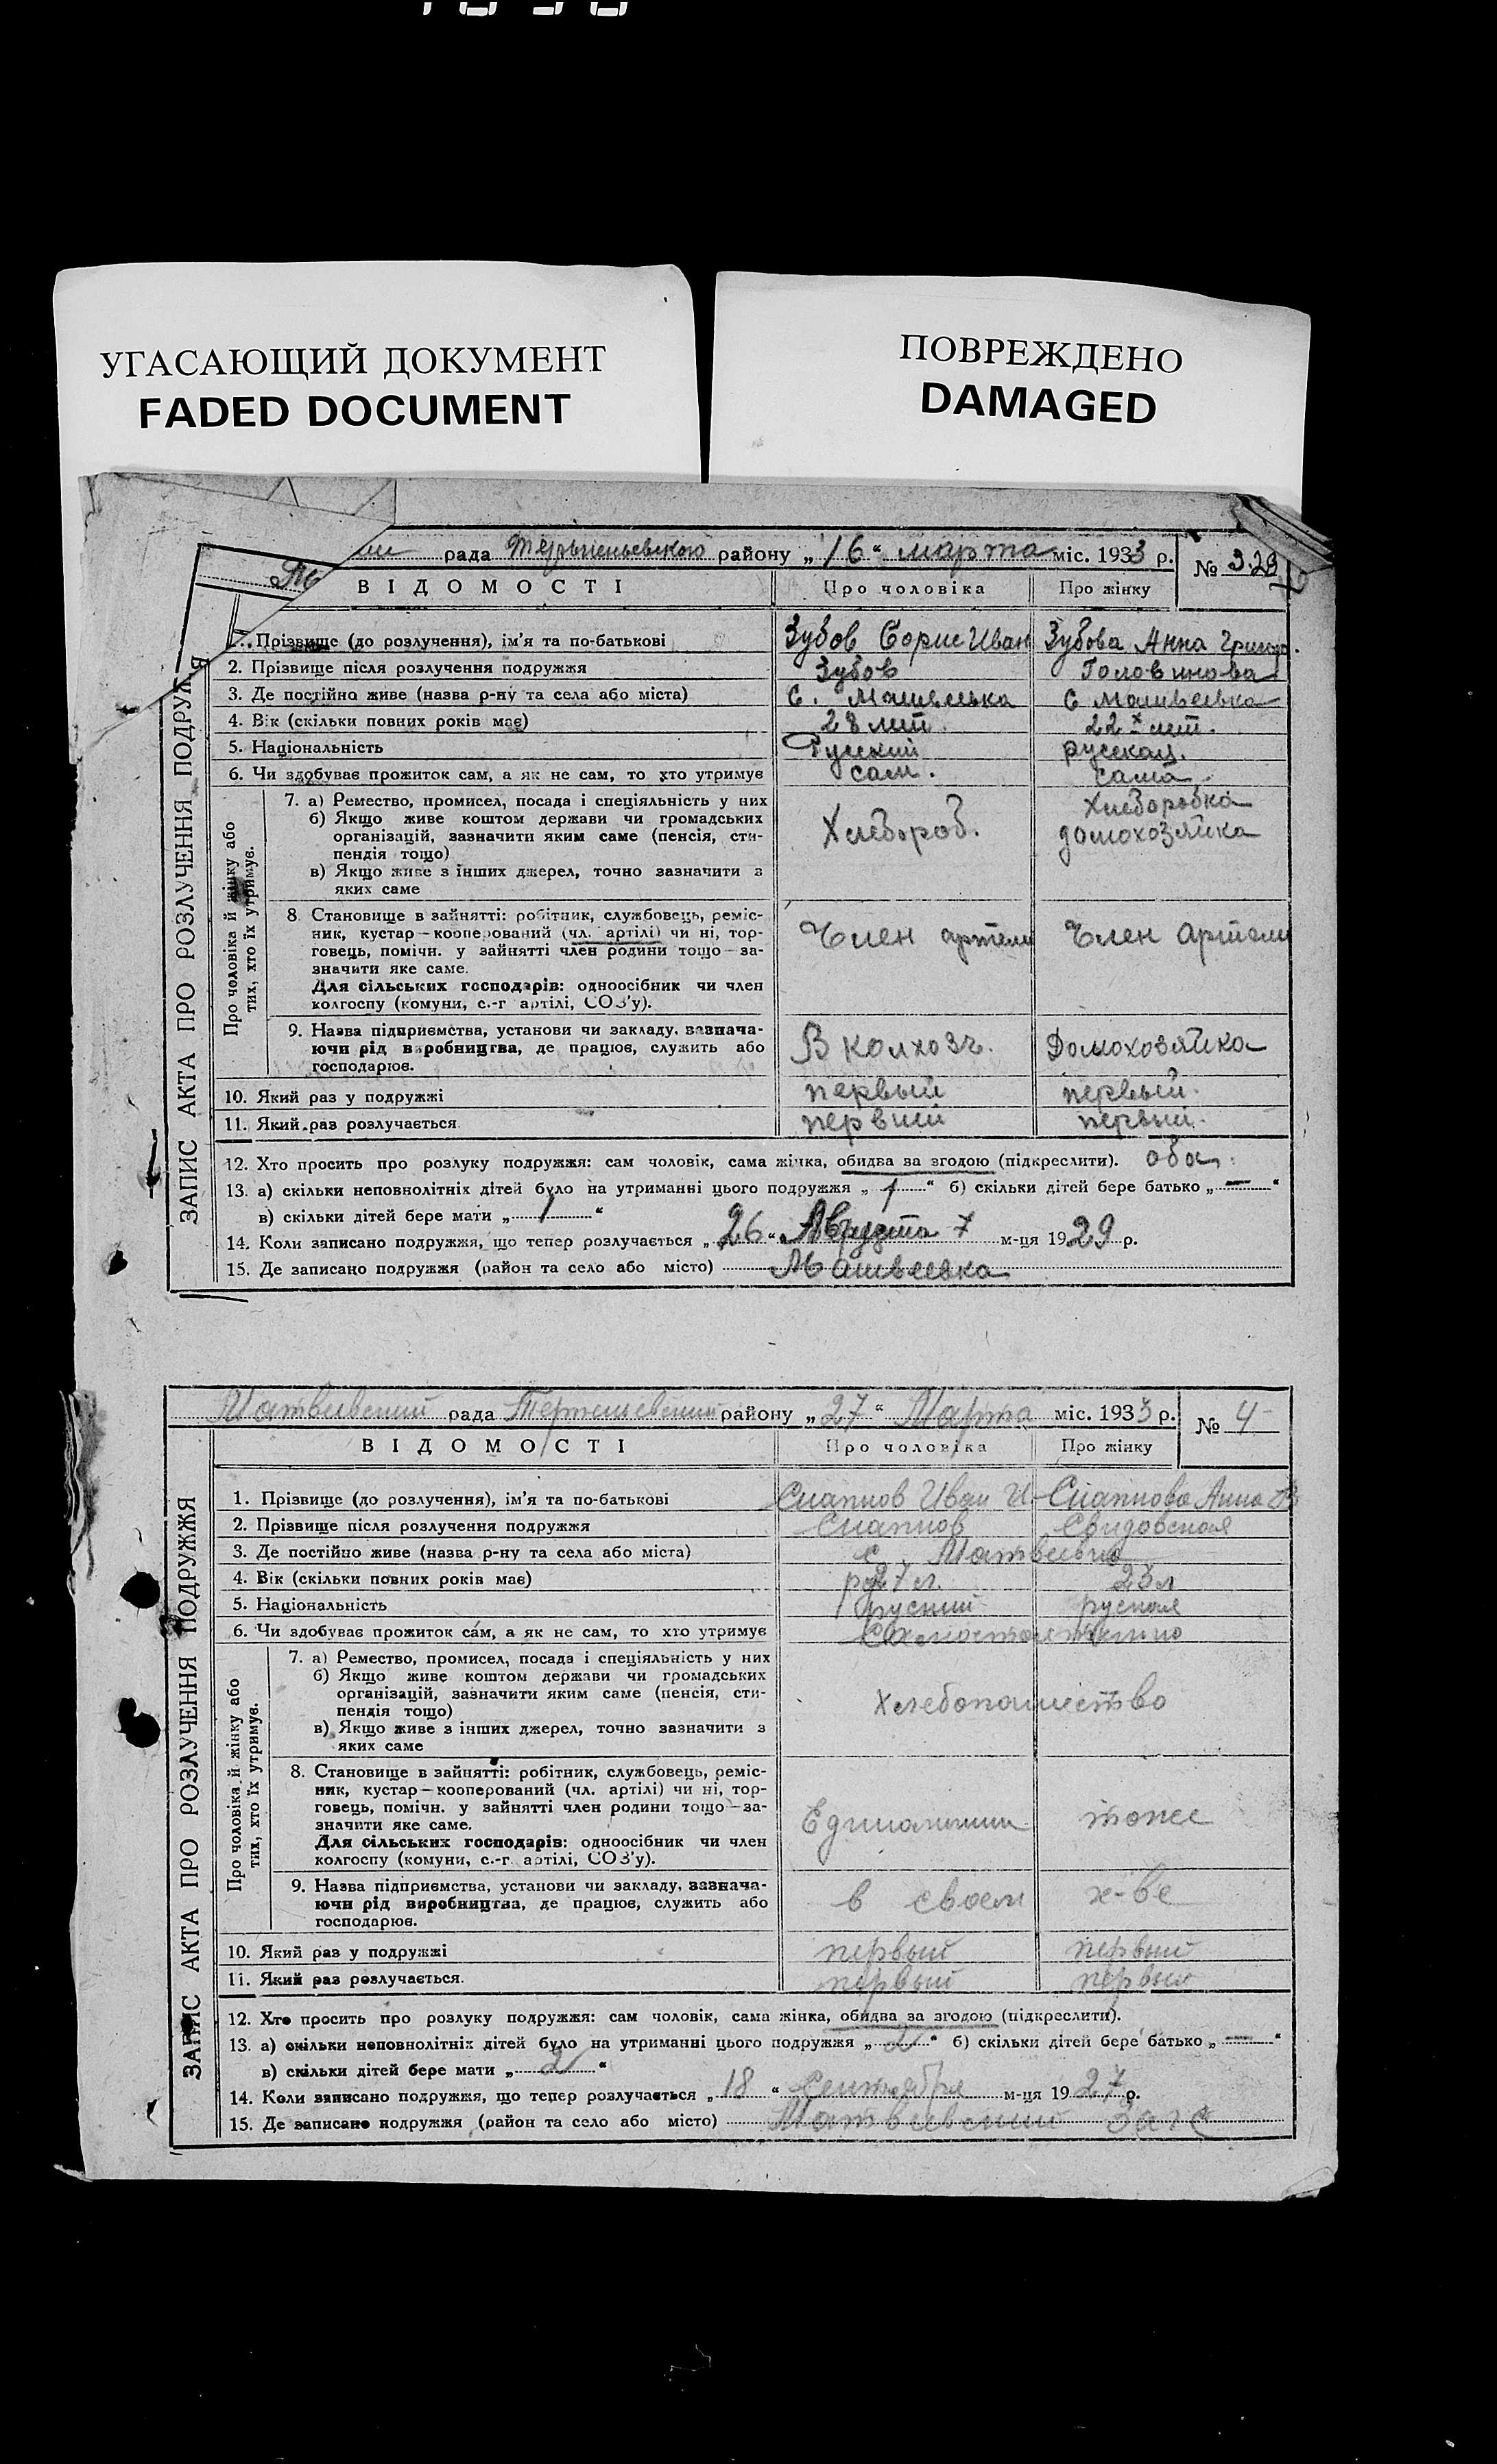 УГАСАЮЩИЙ ДОКУМЕНТ
FADED DOCUMENT
ПОВРЕЖДЕНО
DAMAGED
рада района „16“ марта міс. 1933 р.
№ 3
ВІДОМОСТІ Про чоловіка Про жінку
ЗАПИС АКТА ПРО РОЗЛУЧЕННЯ
1. Прізвище (до розлучення), ім'я та по-батькові Зубов Борис Иван Зубова Анна
2. Прізвище після розлучення подружжя Зубов Головинова
3. Де постійно живе (назва р-ну та села або міста) С. Матвеевка С Матвеевка
4. Вік (скільки повних років має) 28 лет 22х лет.
5. Національність Русский русская.
6. Чи здобуває прожиток сам, а як не сам, то хто утримує сам. сама
Про чоловіка й жінку або тих, хто їх утримує.
7. а) Ремество, промисел, посада і спеціяльність у них
б) Якщо живе коштом держави чи громадських
організацій, зазначити яким саме (пенсія, сти-
пендія тощо)
в) Якщо живе з інших джерел, точно зазначити з
яких саме
Хлебороб. Хлеборобка
домохозяйка
8 Становище в зайнятті: робітник, службовець, реміс-
ник, кустар—кооперований (чл. артілі) чи ні, тор-
говець, помічн. у зайнятті член родини тощо—за-
значити яке саме.
Для сільських господарів: одноосібник чи член
колгоспу (комуни, с.-г артілі, СОЗ'у).
Член артели Член артели
9. Назва підприємства, установи чи закладу, зазнача-
ючи рід виробництва, де працює, служить або
господарює.
В колхозе. Домохозяйка
10. Який раз у подружжі первый первый.
11. Який раз розлучається первый первый.
12. Хто просить про розлуку подружжя: сам чоловік, сама жінка, обидва за згодою (підкреслити). оба
13. а) скільки неповнолітніх дітей було на утриманні цього подружжя „1“ б) скільки дітей бере батько „—“
в) скільки дітей бере мати „1“
14. Коли записано подружжя, що тепер розлучається „26“ Августа м-ця 1929 р.
15. Де записано подружжя (район та село або місто) Матвеевка
Матвеевский рада району „27“ Марта міс. 1933 р.
№ 4
ВІДОМОСТІ Про чоловіка Про жінку
ЗАПИС АКТА ПРО РОЗЛУЧЕННЯ ПОДРУЖЖЯ
1. Прізвище (до розлучення), ім'я та по-батькові Иван И Анна
2. Прізвище після розлучення подружжя Свидовская
3. Де постійно живе (назва р-ну та села або міста) с. Матвеевка
4. Вік (скільки повних років має) 27 л. 23 л
5. Національність руский руская
6. Чи здобуває прожиток сам, а як не сам, то хто утримує Самостоятельно
Про чоловіка й жінку або тих, хто їх утримує.
7. а) Ремество, промисел, посада і спеціяльність у них
б) Якщо живе коштом держави чи громадських
організацій, зазначити яким саме (пенсія, сти-
пендія тощо)
в) Якщо живе з інших джерел, точно зазначити з
яких саме
Хлебопашество
8. Становище в зайнятті: робітник, службовець, реміс-
ник, кустар—кооперований (чл. артілі) чи ні, тор-
говець, помічн. у зайнятті член родини тощо—за-
значити яке саме.
Для сільських господарів: одноосібник чи член
колгоспу (комуни, с.-г. артілі, СОЗ'у).
тоже
9. Назва підприємства, установи чи закладу, зазнача-
ючи рід виробництва, де працює, служить або
господарює.
в своем х-ве
10. Який раз у подружжі первый первый
11. Який раз розлучається. первый первый
12. Хто просить про розлуку подружжя: сам чоловік, сама жінка, обидва за згодою (підкреслити).
13. а) скільки неповнолітніх дітей було на утриманні цього подружжя „2“ б) скільки дітей бере батько „—“
в) скільки дітей бере мати „2“
14. Коли записано подружжя, що тепер розлучається „18“ Сентября м-ця 1927 р.
15. Де записано подружжя (район та село або місто) Матвеевский Загс